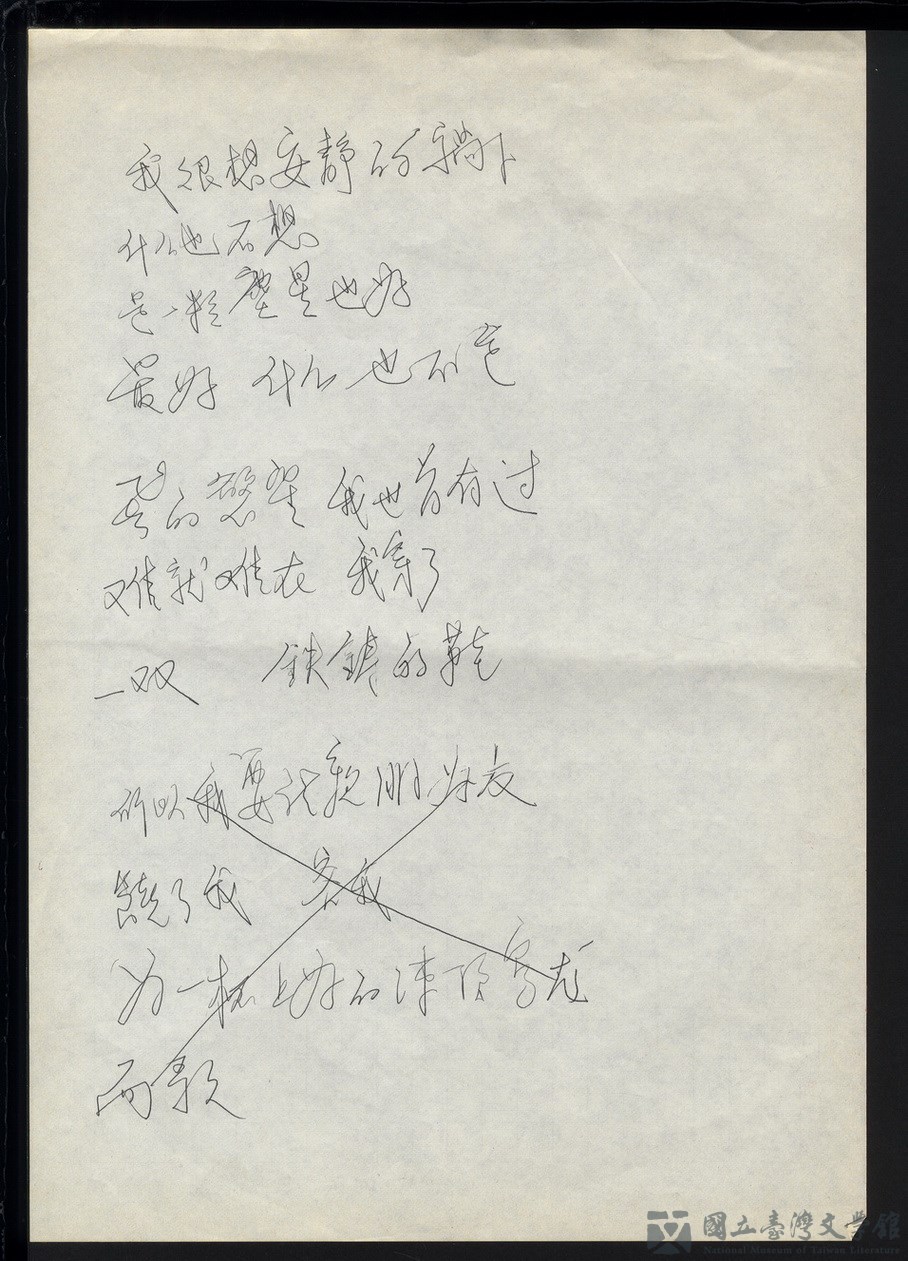 我很想安静的躺下
什么也不想
是一粒塵星也好
最好 什么也不是
的慾望 我也曾有过
难就难在 我穿了
一双 鉄鋳的鞋
所以我要让親朋好友
饒了我 容我
为一杯上好的凍顶烏龙
而歌
國立臺灣文學館
National Museum of Taiwan Literature